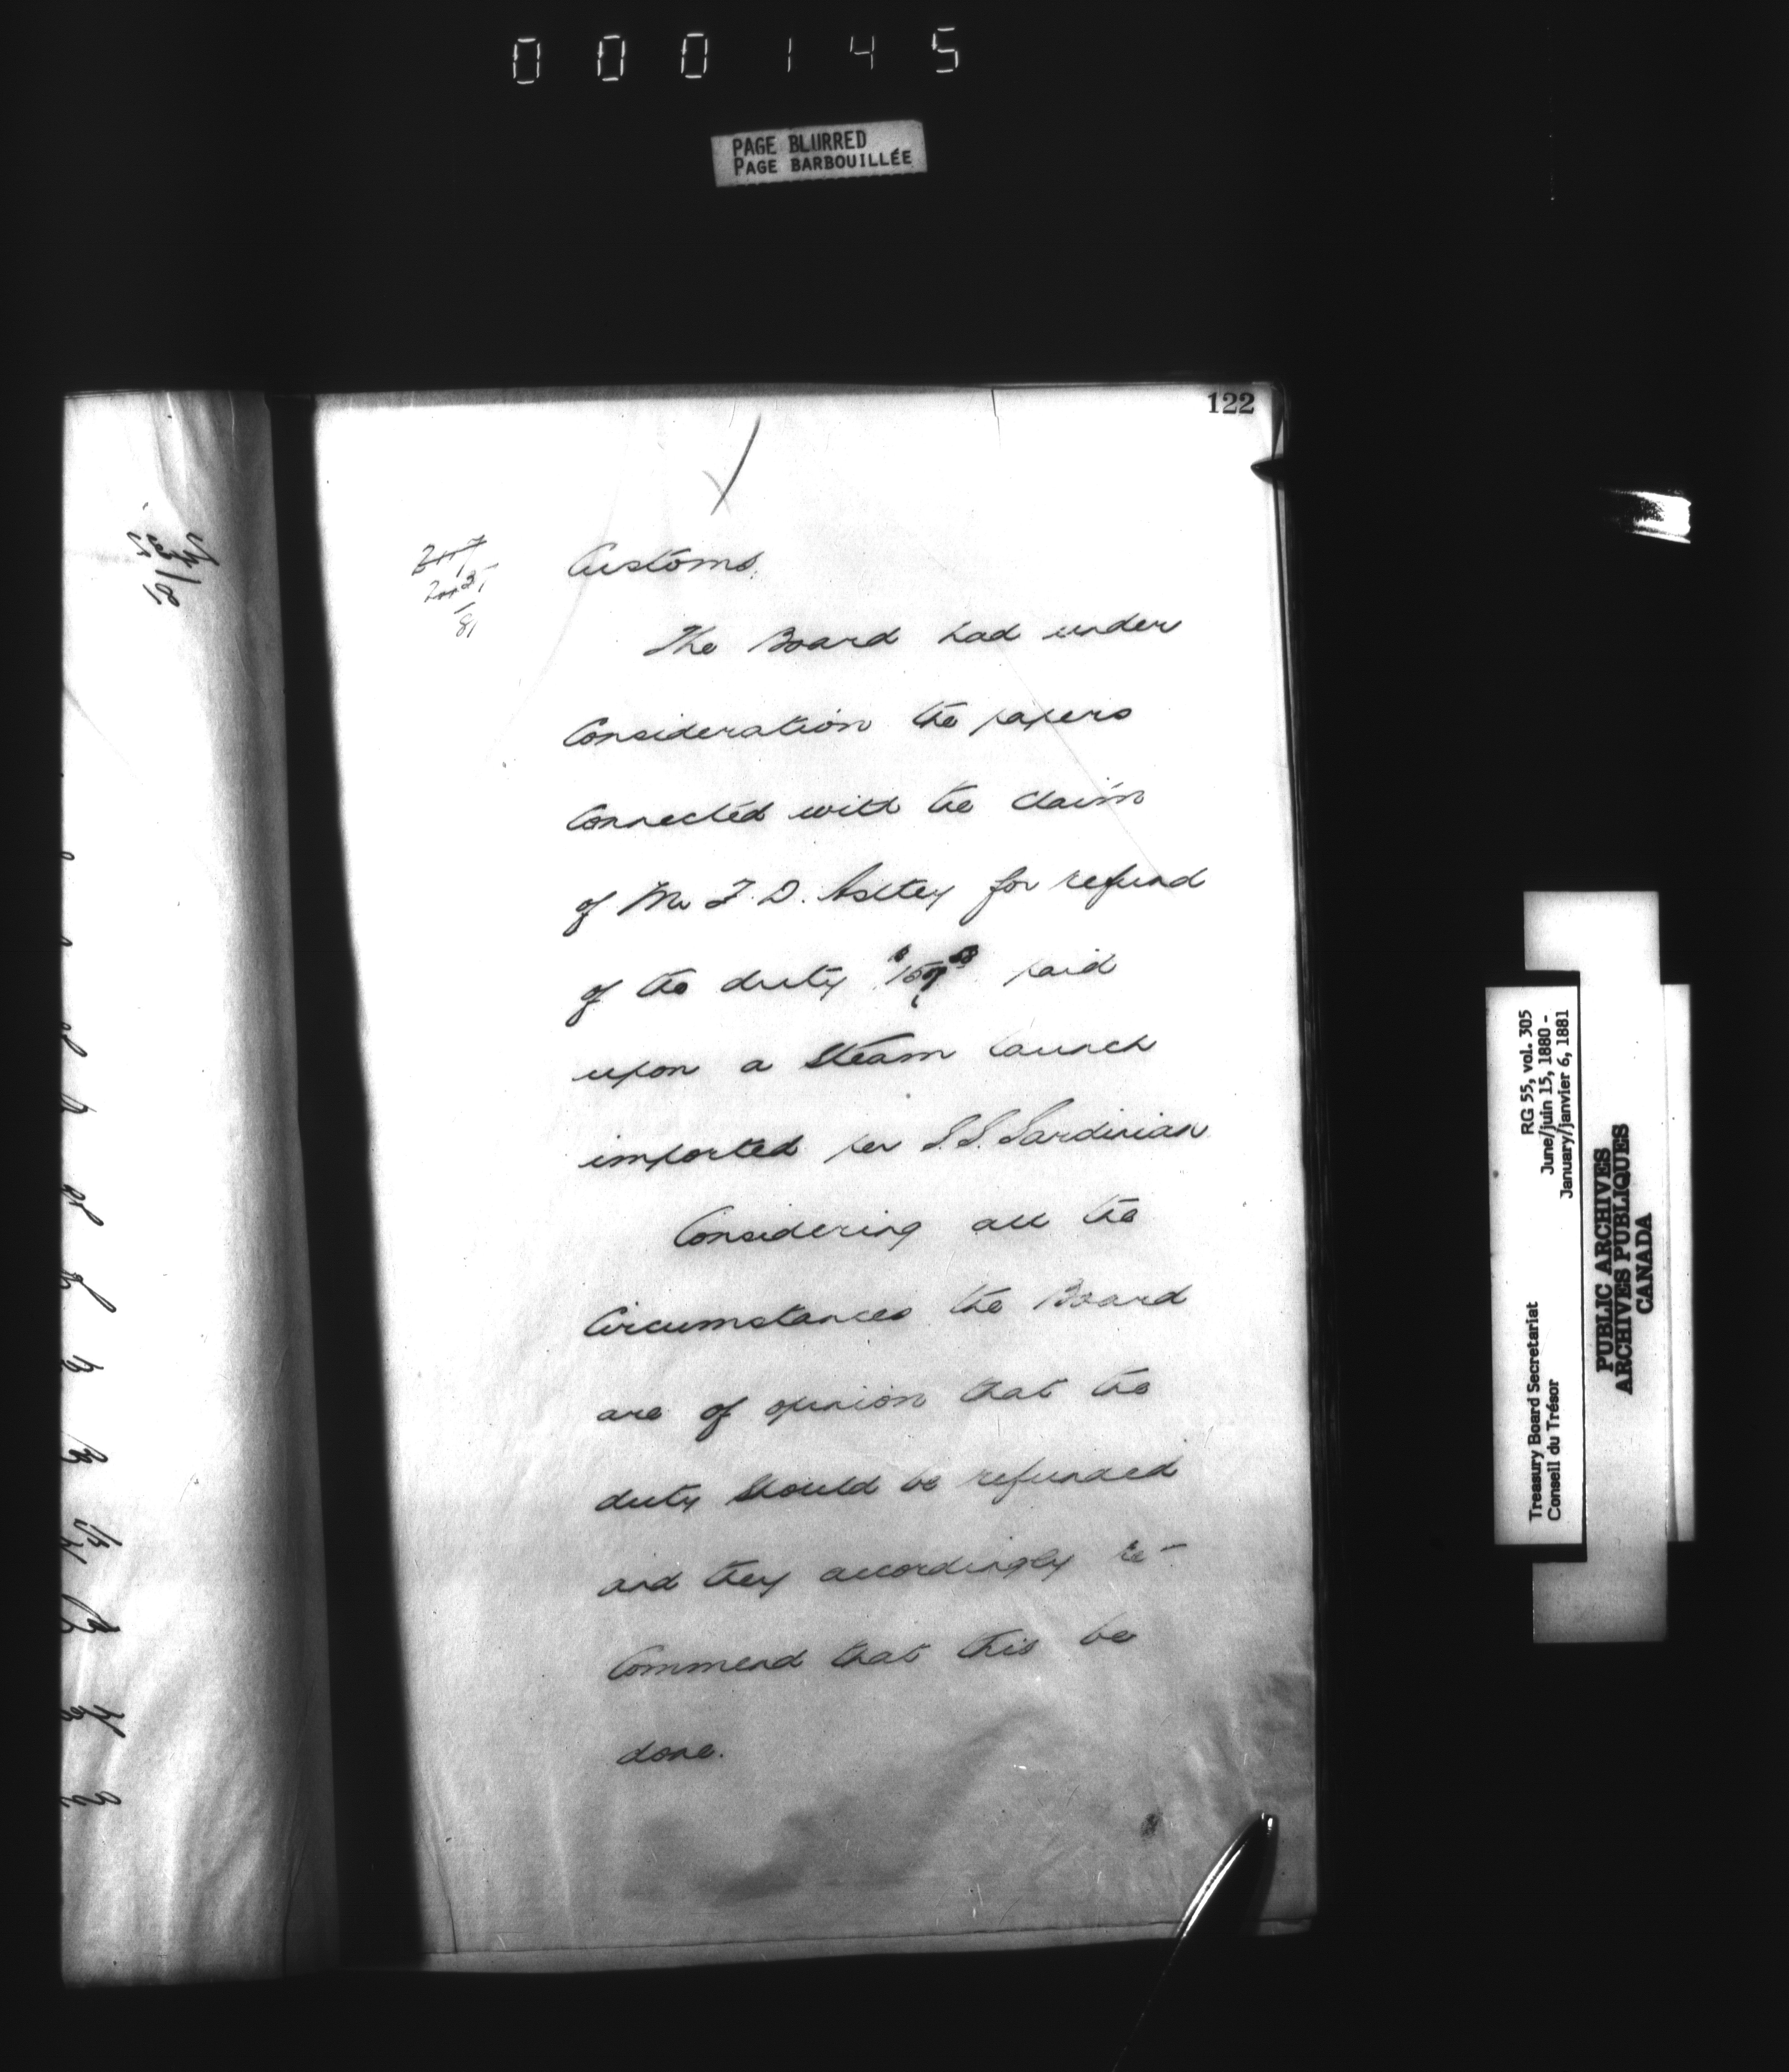 000145
PAGE BLURRED
PAGE BARBOUILLÉE
122
Customs.
The Board had under
Consideration the papers
Connected with the claim
of Mr F. D. Astley for refund
of the duty paid
upon a Steam launch
imported per S.S. Sardinian
Considering all the
Circumstances the Board
are of opinion that the
duty should be refunded
and they accordingly re-
Commend that this be
done.
Treasury Board Secretariat RG 55, vol. 305
Conseil du Trésor June/juin 15, 1880 -
January/janvier 6, 1881
PUBLIC ARCHIVES
ARCHIVES PUBLIQUES
CANADA